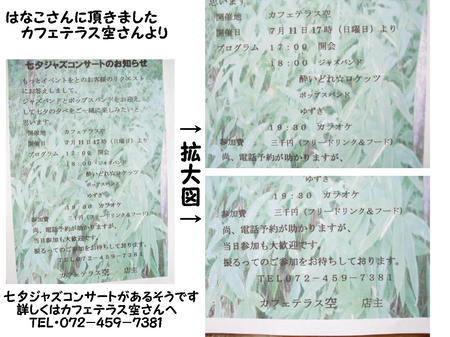 はなこさんに頂きました
カフェテラス空さんより
七夕ジャズコンサートのお知らせ
もっとイベントをとのお客様のリクエスト
にお答えしまして、
ジャズバンドとポップスバンドをお迎え
して七夕の夕べをご一緒に楽しみたいと
思います。
開催地 カフェテラス空
開催日 7月11日17時（日曜日）より
プログラム 17:00 開会
18:00 ジャズバンド
酔いどれ☆ロケッツ
ポップスバンド
ゆずき
19:30 カラオケ
参加費 三千円（フリードリンク＆フード）
尚、電話予約が助かりますが、
当日参加も大歓迎です。
振るってのご参加をお待ちしております。
TEL072-459-7381
カフェテラス空 店主
七夕ジャズコンサートがあるそうです
詳しくはカフェテラス空さんへ
TEL・072-459-7381
→拡大図→
思います。
開催地 カフェテラス空
開催日 7月11日17時（日曜日）より
プログラム 17:00 開会
18:00 ジャズバンド
酔いどれ☆ロケッツ
ポップスバンド
ゆずき
19:30 カラオケ
参加費 三千円（フリードリンク＆フード）
尚、電話予約が助かりますが、
ゆずき
19:30 カラオケ
参加費 三千円（フリードリンク＆フード）
尚、電話予約が助かりますが、
当日参加も大歓迎です。
振るってのご参加をお待ちしております。
TEL072-459-7381
カフェテラス空 店主